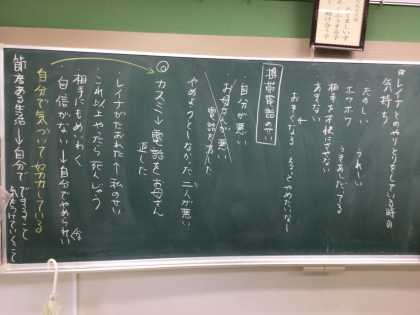 ☆レイナとのやりとりをしている時の
気持ち
たのしい
うれしい
ホワホワ
うきあしだってる
相手を不快にさせない
あきない
↓
おそくなる ちょっとやめたいなー
携帯電話のせい
・自分が悪い
・お母さんが悪い
電話を
・やめようとしなかった二人が悪い
◎カスミ→電話をお母さん
返した
・レイナがたおれた↑私のせい
・これ以上やったら死んじゃう
・相手にもめいわく
・自信がない→自分でやめられない
自分で気づいて努力している
節度ある生活→自分でできること
気をつけていくこと